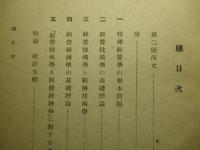 總目次
第二版序文
序
一 特殊經營學の根本問題
二 經營技術學の基礎理論
三 經營技術學と經濟技術學
四 經營經濟學の基礎理論
五 「經營技術學と經營經濟學」に對する
附錄 批評文獻
總目次